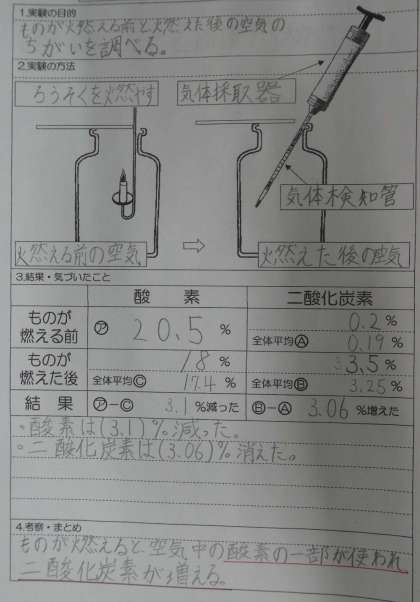 1.実験の目的
ものが燃える前と燃えた後の空気の
ちがいを調べる。
2.実験の方法
ろうそくを燃やす
気体採取器
気体検知管
燃える前の空気
⇨
燃えた後の空気
3.結果・気づいたこと
酸素 二酸化炭素
ものが燃える前 ㋐ 20.5% 0.2%
全体平均Ⓐ 0.19%
ものが燃えた後 18% 3.5%
全体平均Ⓒ 17.4% 全体平均Ⓑ 3.25%
結果 ㋐-Ⓒ 3.1%減った Ⓑ-Ⓐ 3.06%増えた
・酸素は(3.1)%減った。
・二酸化炭素は(3.06)%消えた。
4.考察・まとめ
ものが燃えると空気中の酸素の一部が使われ
二酸化炭素が増える。